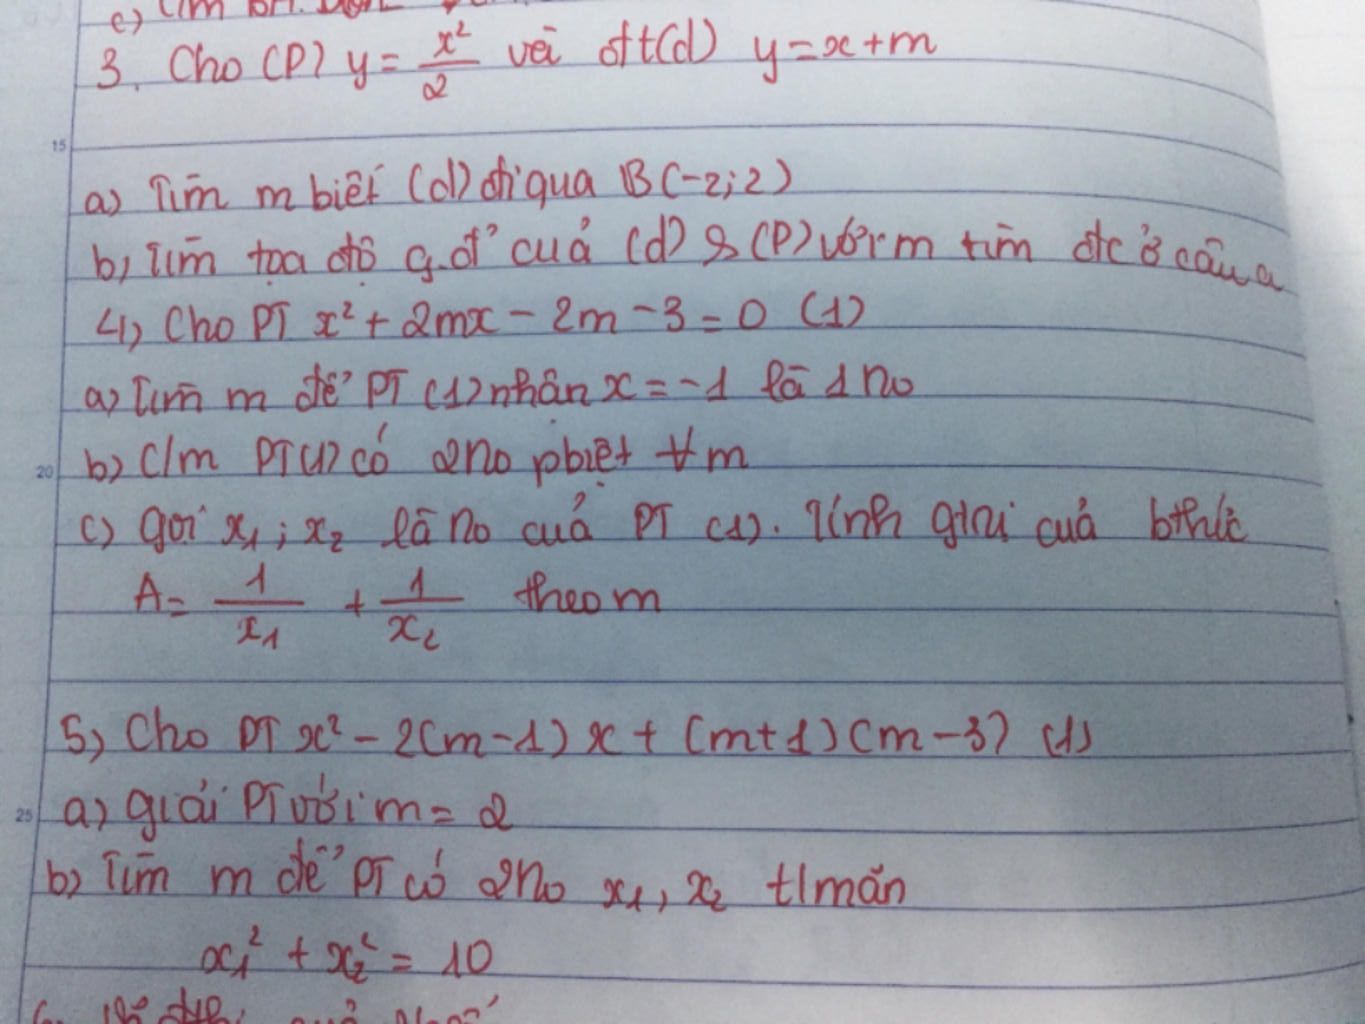 c) Tìm
3. Cho (P) y = x²/2 và đt(d) y = x + m
15
a) Tìm m biết (d) đi qua B(-2;2)
b) Tìm tọa độ g.đ' của (d) & (P) với m tìm đc ở câu a
4) Cho PT x² + 2mx - 2m - 3 = 0 (1)
a) Tìm m để PT (1) nhận x = -1 là 1 no
20
b) C/m PT(1) có 2no pbiệt ∀m
c) gọi x₁; x₂ là no của PT (1). Tính gtri của bthức
A = 1/x₁ + 1/x₂ theo m
5) Cho PT x² - 2(m-1)x + (m+1)(m-3) (1)
25
a) giải PT với m = 2
b) Tìm m để PT có 2no x₁, x₂ t/mãn
x₁² + x₂² = 10